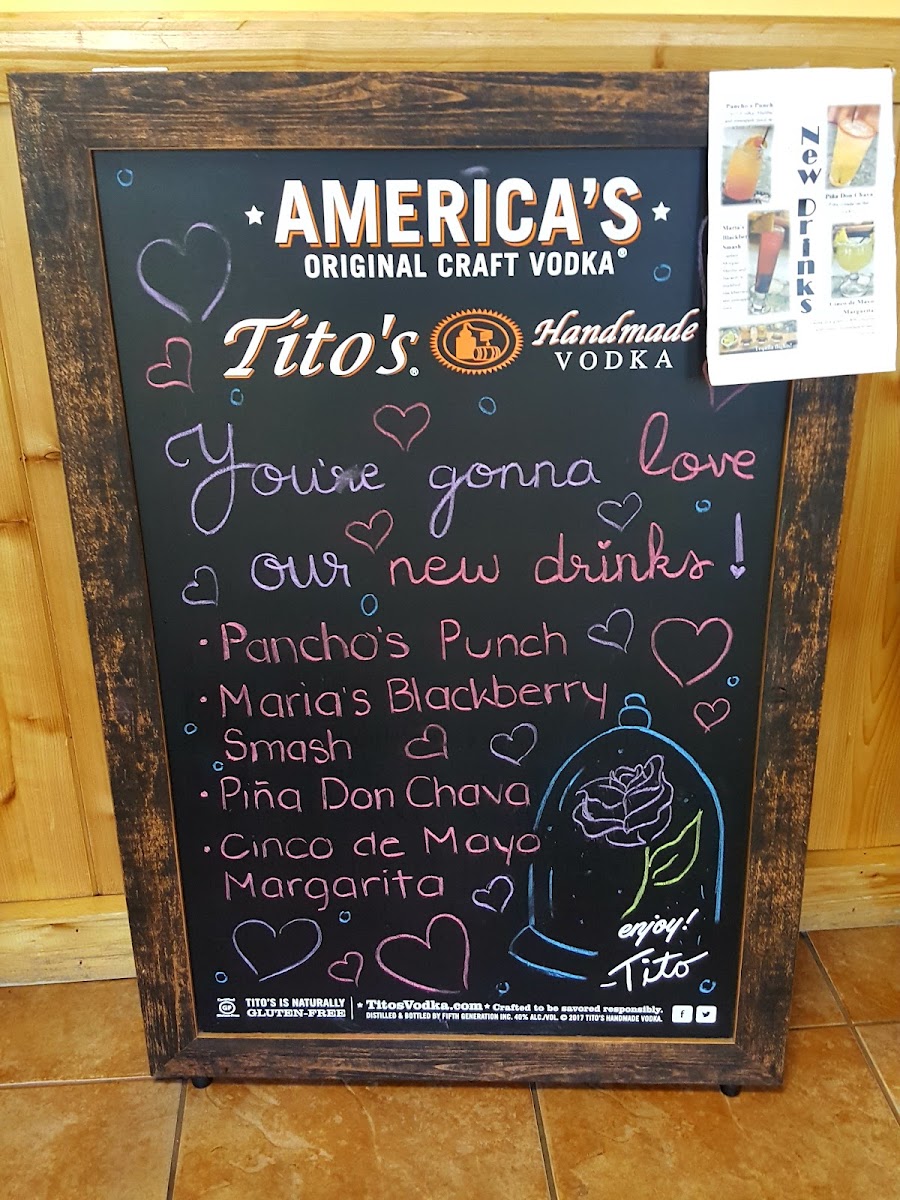 AMERICA'S
ORIGINAL CRAFT VODKA®
Tito's® Handmade
VODKA
You're gonna love
our new drinks!
• Pancho's Punch
• Maria's Blackberry
Smash
• Piña Don Chava
• Cinco de Mayo
Margarita
enjoy!
-Tito
TITO'S IS NATURALLY
GLUTEN-FREE
GF
* TitosVodka.com * Crafted to be savored responsibly.
DISTILLED & BOTTLED BY FIFTH GENERATION INC. 40% ALC./VOL. © 2017 TITO'S HANDMADE VODKA.
New Drinks
Pancho's Punch
Piña Don Chava
Maria's
Smash
Cinco de Mayo
Margarita